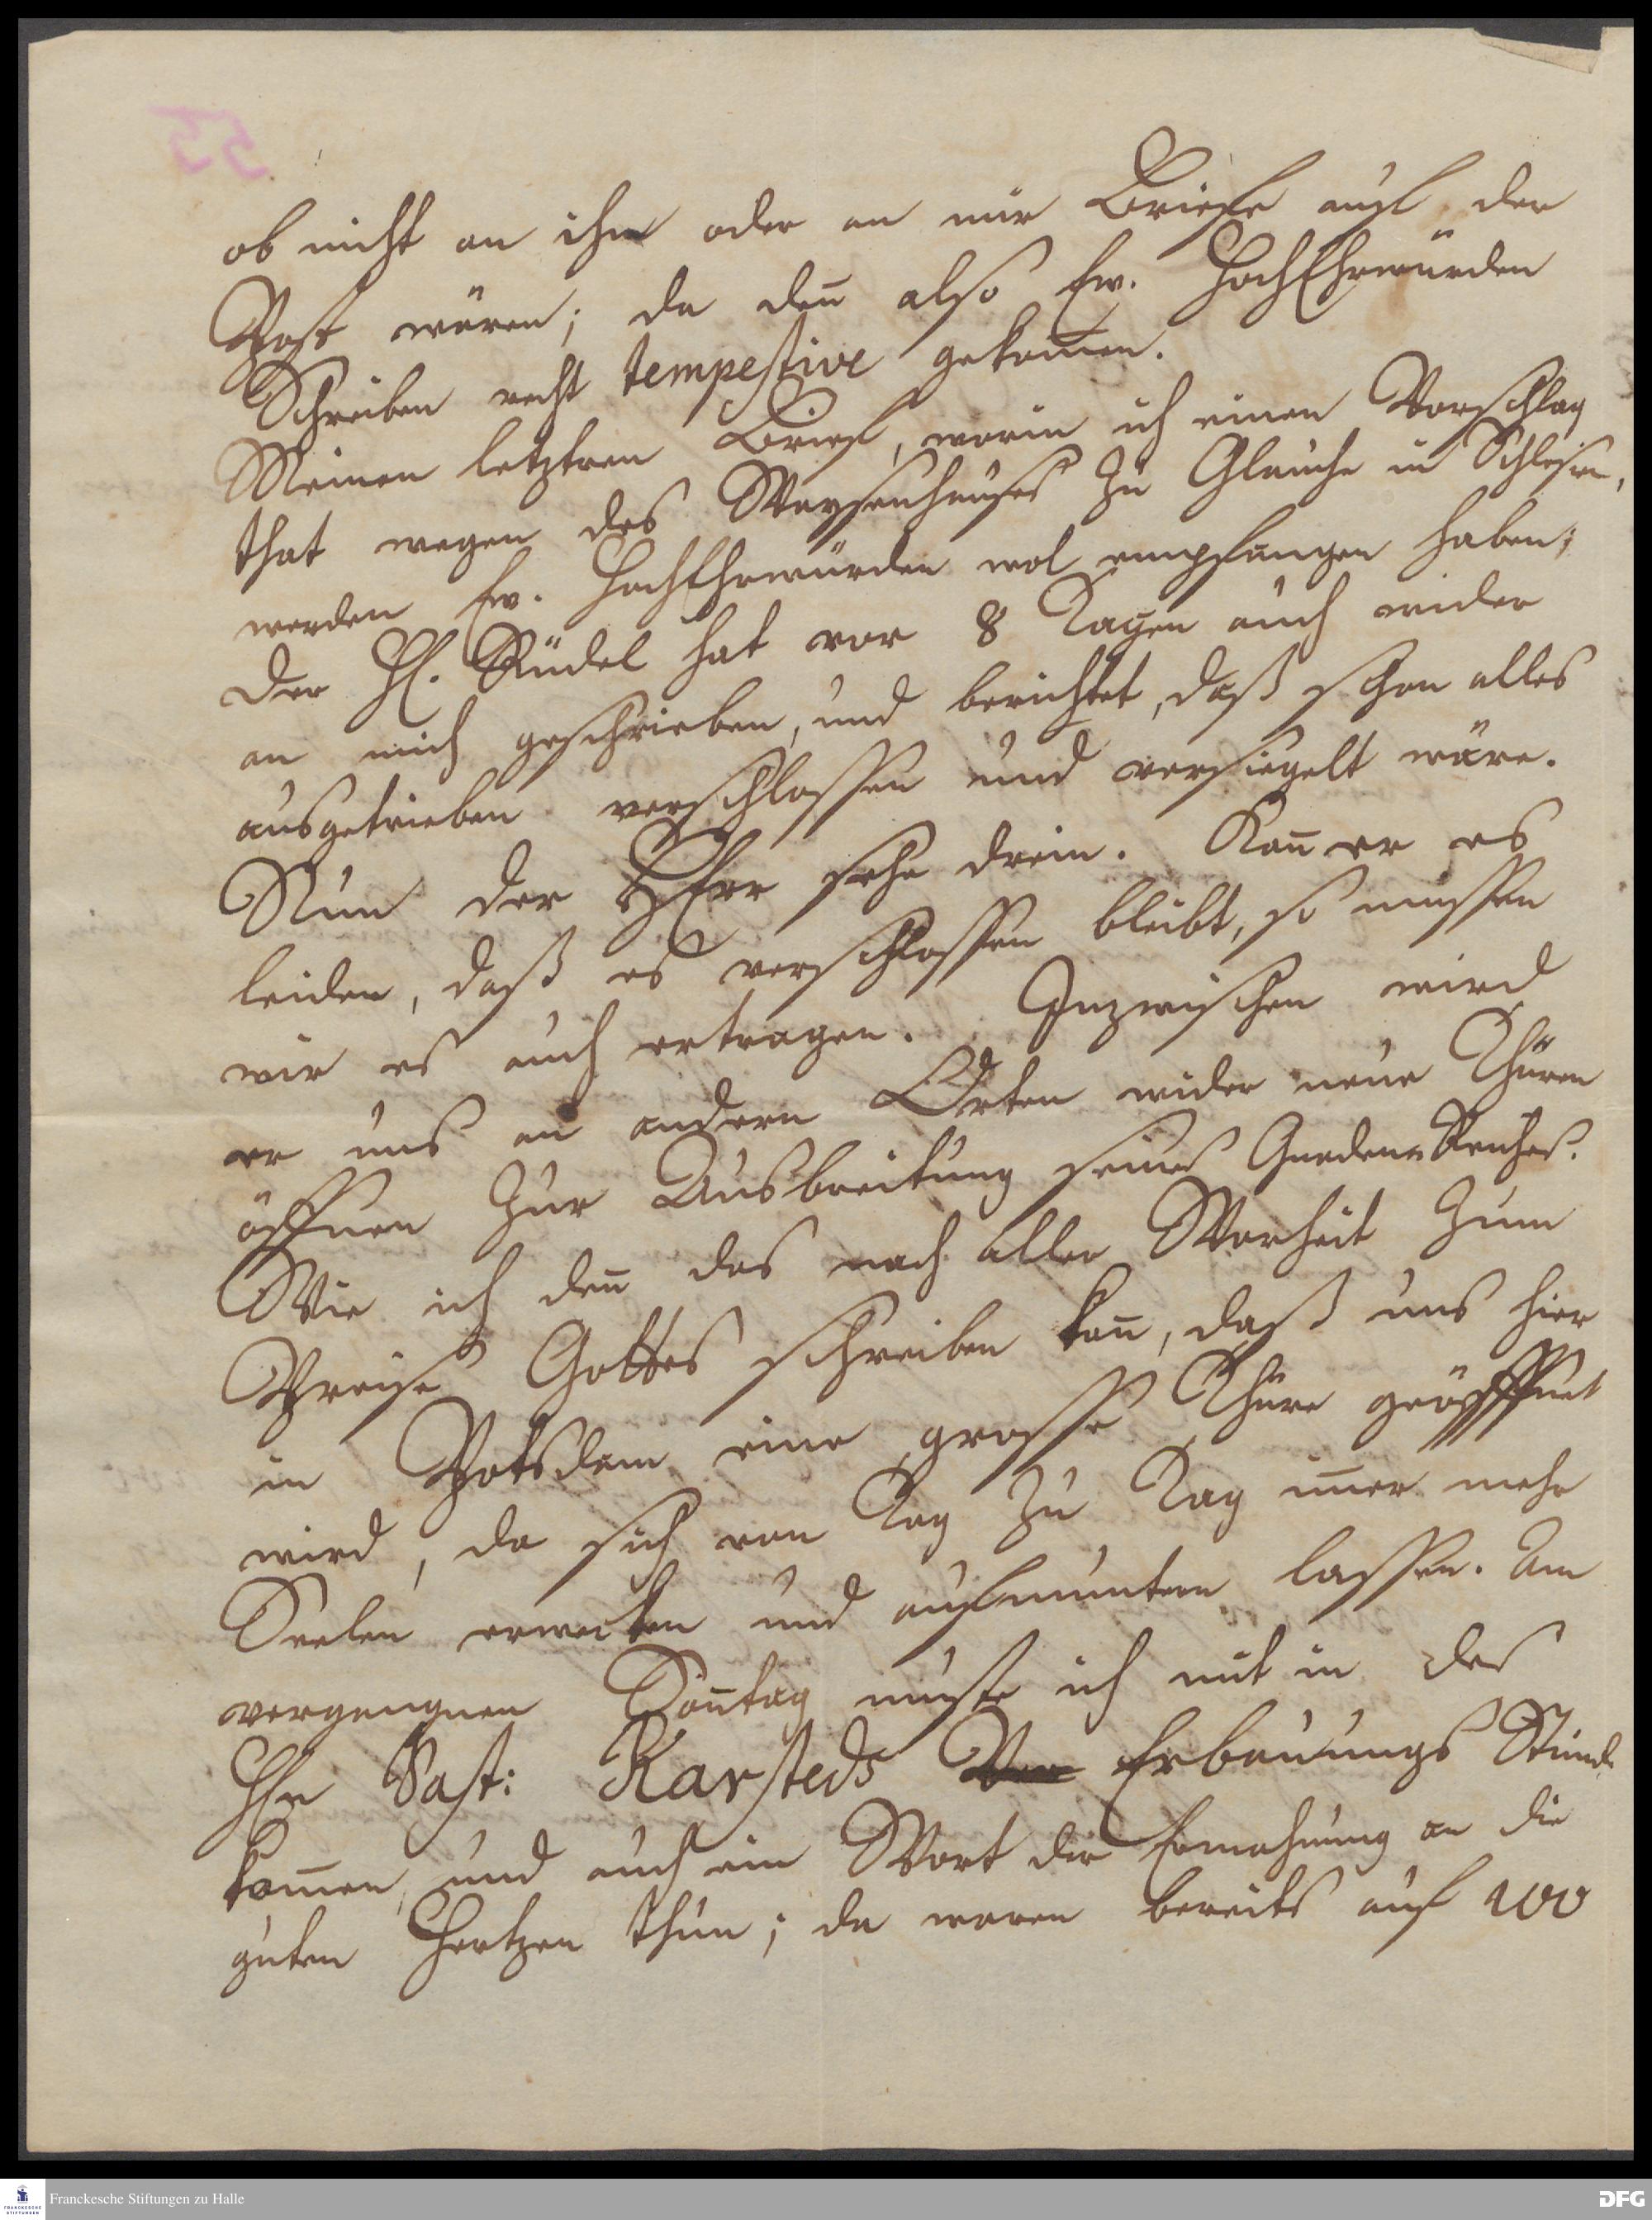 55
ob nicht an ihn oder an mir Briefe auf der
Post wären; da deñ also Ew. HochEhrwürden
Schreiben recht tempestive gekom̃en.
Meinen letztern Brief, worin ich einen Vorschlag
that wegen des Waysenhauses zu Glauche in Schlesien,
werden Ew. HochEhrwürden wol empfangen haben;
der H. Rüdel hat vor 8 Tagen auch wider
an mich geschrieben, und berichtet, daß schon alles
ausgetrieben verschlossen und versiegelt wäre.
Nun der HErr sehe drein. Kañ er es
leiden, daß es verschlossen bleibt, so müssen
wir es auch ertragen. Inzwischen wird
er uns an andern Orten wider neue Thüren
öffnen zur Ausbreitung seines Gnaden-Reiches.
Wie ich deñ das nach aller Warheit zum
Preise Gottes schreiben kañ, daß uns hier
in Potsdam eine grosse Thüre geöffnet
wird, da sich von Tag zu Tag im̃er mehr
Seelen erwecken und aufmuntern lassen. Am
vergangnen Soñtag muste ich mit in des
HEn Past: Karsteds Erbauungs Stunde
kom̃en, und auch ein Wort der Ermahnung an die
guten Hertzen thun; da waren bereits auf 200
Franckesche Stiftungen zu Halle
FRANCKESCHE
STIFTUNGEN
DFG